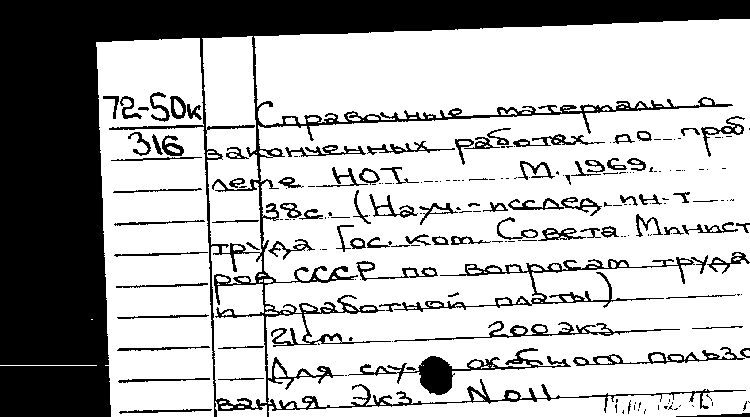 72-50к Справочные материалы о
316 законченных работах по проб
леме НОТ. М., 1969.
38с. (Науч.-исслед. ин-т
труда Гос. ком. Совета Минист
ров СССР по вопросам труда
и заработной платы)
21см. 200 экз.
Для слу ожебного пользо
вания. Экз. N 011.